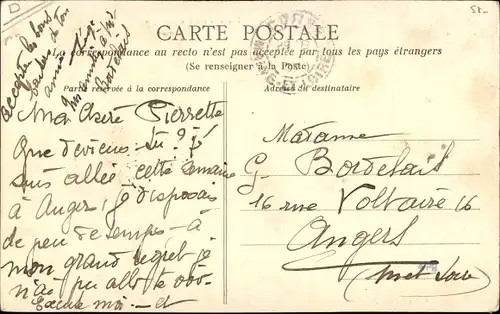 CARTE POSTALE
La correspondance au recto n'est pas acceptée par tous les pays étrangers
(Se renseigner à la Poste)
Partie réservée à la correspondance
Adresse du destinataire
Ma Chère Pierrette
Que deviens-tu ? J'
suis allée cette semaine
à Angers, je disposais
de peu de temps - à
mon grand regret je
n'ai pu aller te voir
Excuse moi - et
accepte les bons
baisers de ton
amie
Madame
G. Bordelais
16 rue Voltaire 16
Angers